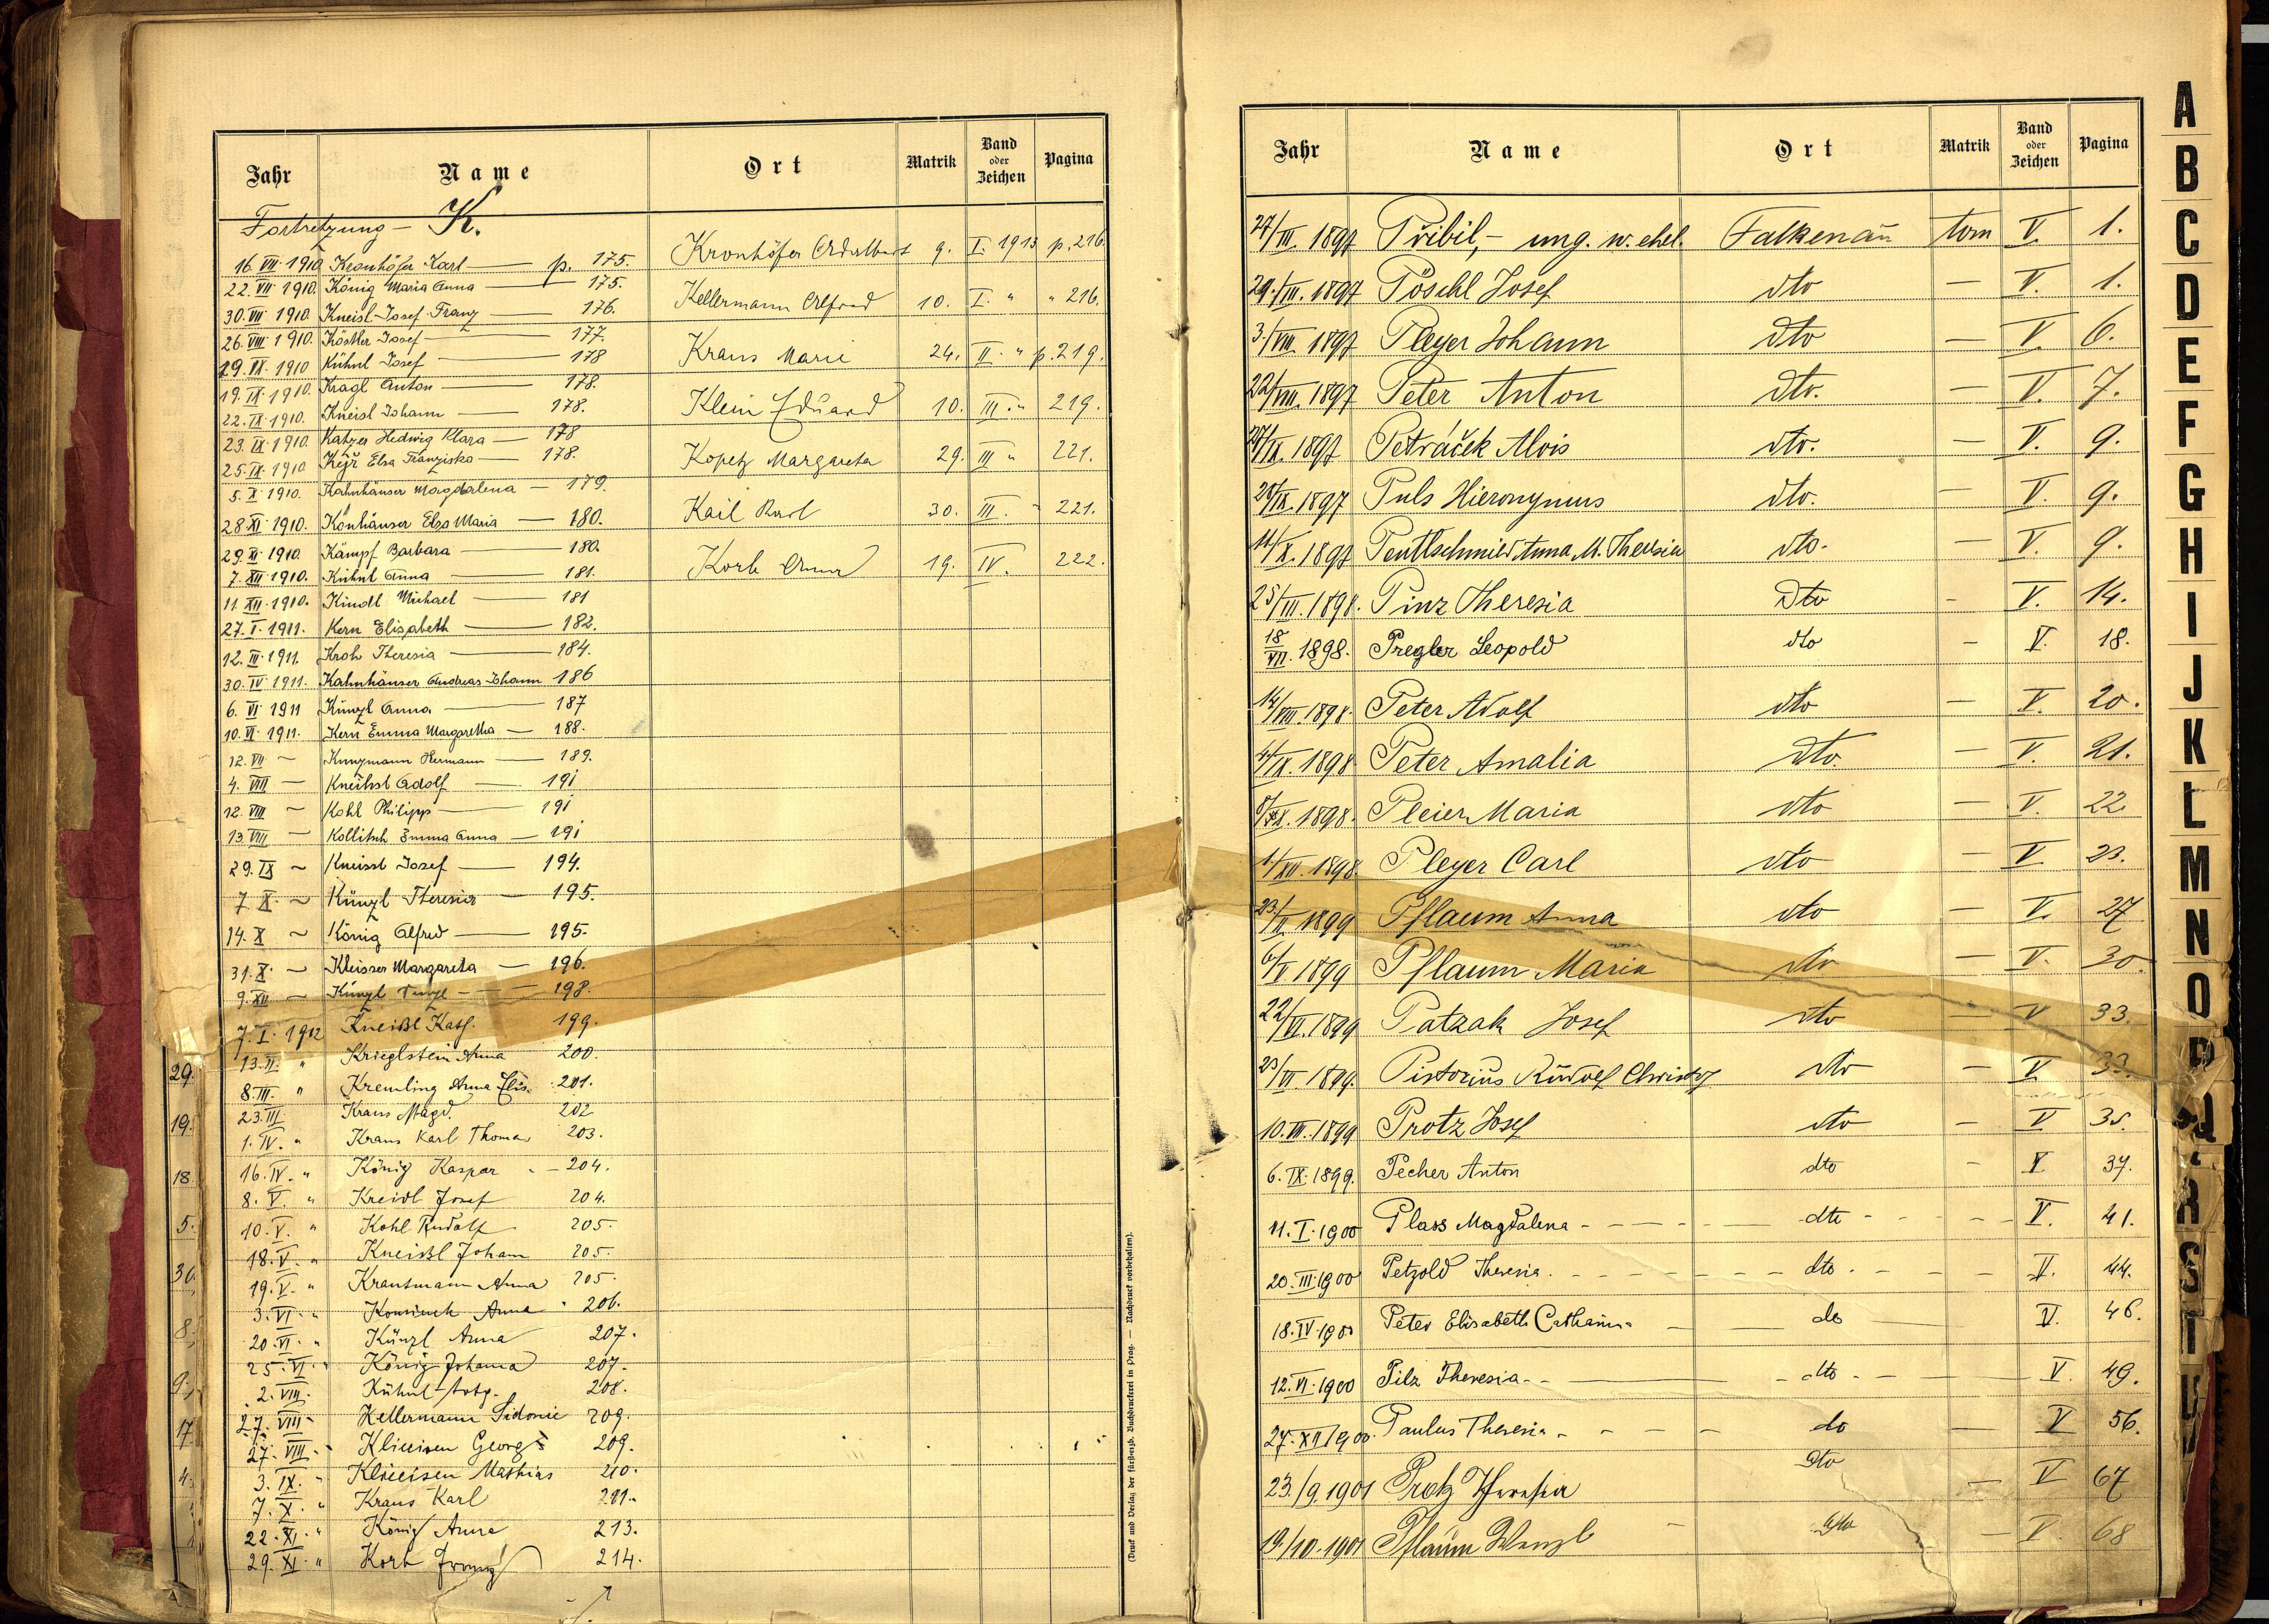 Jahr Name Ort Matrik Band oder Zeichen Pagina
Fortsetzung – K.
16. VII 1910 Kronhöfer Karl — p. 175.
22. VII 1910. König Maria Anna — 175.
30. VIII 1910 Kneisl Josef Franz — 176.
26. VIII 1910. Köstler Josef — 177.
19. IX. 1910 Kühnl Josef — 178
19. IX. 1910. Kragl Anton — 178.
22. IX. 1910. Kneisl Johann — 178.
23. IX 1910 Katzer Hedwig Klara — 178
25. IX 1910 Kejř Elsa Franziska — 178.
5. X 1910. Kahnhäuser Magdalena — 179.
28 XI. 1910. Könhäuser Elsa Maria — 180.
29. XI 1910. Kämpf Barbara — 180.
7. XII 1910. Kühnl Anna — 181.
11. XII. 1910. Kindl Michael — 181
27. I. 1911. Kern Elisabeth — 182.
12. III 1911. Kroh Theresia — 184.
30. IV 1911. Kahnhäuser Andreas Johann 186
6. VI 1911 Künzl Anna — 187
10. VI 1911. Kern Emma Margaretha — 188.
12. VII ~ Kunzmann Hermann — 189.
4. VIII — Adolf — 191
12. VIII ~ Kohl Philipp — 191
13. VIII — Kollitsch Emma Anna — 191
29. IX ~ Kneissl Josef — 194.
7. X. ~ Künzl Theresia — 195.
14. X ~ König Alfred — 195.
31. X. ~ Kleisser Margareta — 196.
9. XII — Künzl — 198.
7. I. 1912 Kneißl Kath. 199.
13. II. " Krieglstein Anna 200.
8. III. " Kremling Anna Elis. 201.
23. III. Kraus Magd. 202
1. IV. " Kraus Karl Thomas 203.
16. IV. " König Kaspar - 204.
8. V. " Kreidl Josef 204.
10. V. " Kohl Rudolf 205.
18. V. " Kneißl Johann 205.
19. V. " Krautmann Anna 205.
3. VI. " Anna 206.
20. VI. " Künzl Anna 207.
25. VI. " König Johanna 207.
2. VIII. Kühnl 208.
27. VIII " Kellermann Sidonie 209.
27. VIII. " Klieeisen Georg 209.
3. IX. " Klieeisen Mathias 210.
7. X. " Kraus Karl 211.
22. XI. " König Anna 213.
29. XI. " Korb Franz 214.
Kronhöfer Adalbert 9. I. 1913 p. 216.
Kellermann Alfred 10. I. " " 216.
Kraus Marie 24. II. " p. 219.
Klein Eduard 10. III. " 219.
Kopetz Margareta 29. III " 221.
Kail Karl 30. III. " 221.
Korb Anna 19. IV. 222.
29.
19.
18
5.
30.
8.
9.
17
4.
(Druck und Verlag der fürsterzb. Buchdruckerei in Prag. — Nachdruck vorbehalten).
Jahr Name Ort Matrik Band oder Zeichen Pagina
27/III. 1897 Přibil, – ung. w. ehel. Falkenau tom V. 1.
29./III. 1897 Pöschl Josef dto — V. 1.
3./VIII. 1897 Pleyer Johann dto — V. 6.
22/VIII. 1897 Peter Anton dto. — V. 7.
27/IX. 1897 Petráček Alois dto. — V. 9.
28/IX. 1897 Puls Hieronymus dto. — V. 9.
11/X. 1897 Pentlschmid Anna M. Theresia dto. — V. 9.
25/III. 1898. Pinz Theresia dto - V. 14.
18/VII. 1898. Pregler Leopold dto - V. 18.
14/VIII. 1898. Peter Adolf dto — V. 20.
4/IX. 1898 Peter Amalia dto. — V. 21.
8/XI. 1898. Pleier Maria dto — V. 22
1./XII. 1898. Pleyer Carl dto — V 23.
23/II. 1899 Pflaum Anna dto — V. 27
6/V 1899 Pflaum Maria dto — V. 30.
22/VI. 1899 Patzak Josef dto — V 33.
23/VI 1899. Pistorius Rudolf Christof dto — V 33.
10. VII. 1899 Protz Josef dto — V 35.
6. IX. 1899. Pecher Anton dto - V. 37.
11. I. 1900 Plass Magdalena - dto - V. 41.
20. III. 1900 Petzold Theresia. - dto. - V. 44.
18. IV. 1900 Peter Elisabeth Catharina - do — V. 46.
12. VI. 1900 Pilz Theresia - dto - V. 49.
27. XII 1900. Paulus Theresia - do — V 56.
23./9. 1901 Protz Theresia dto — V 67
19./10. 1901 Pflaum Wenzl - dto — V. 68
A
B
C
D
E
F
G
H
I
J
K
L
M
N
O
P
Q
R
S
T
U